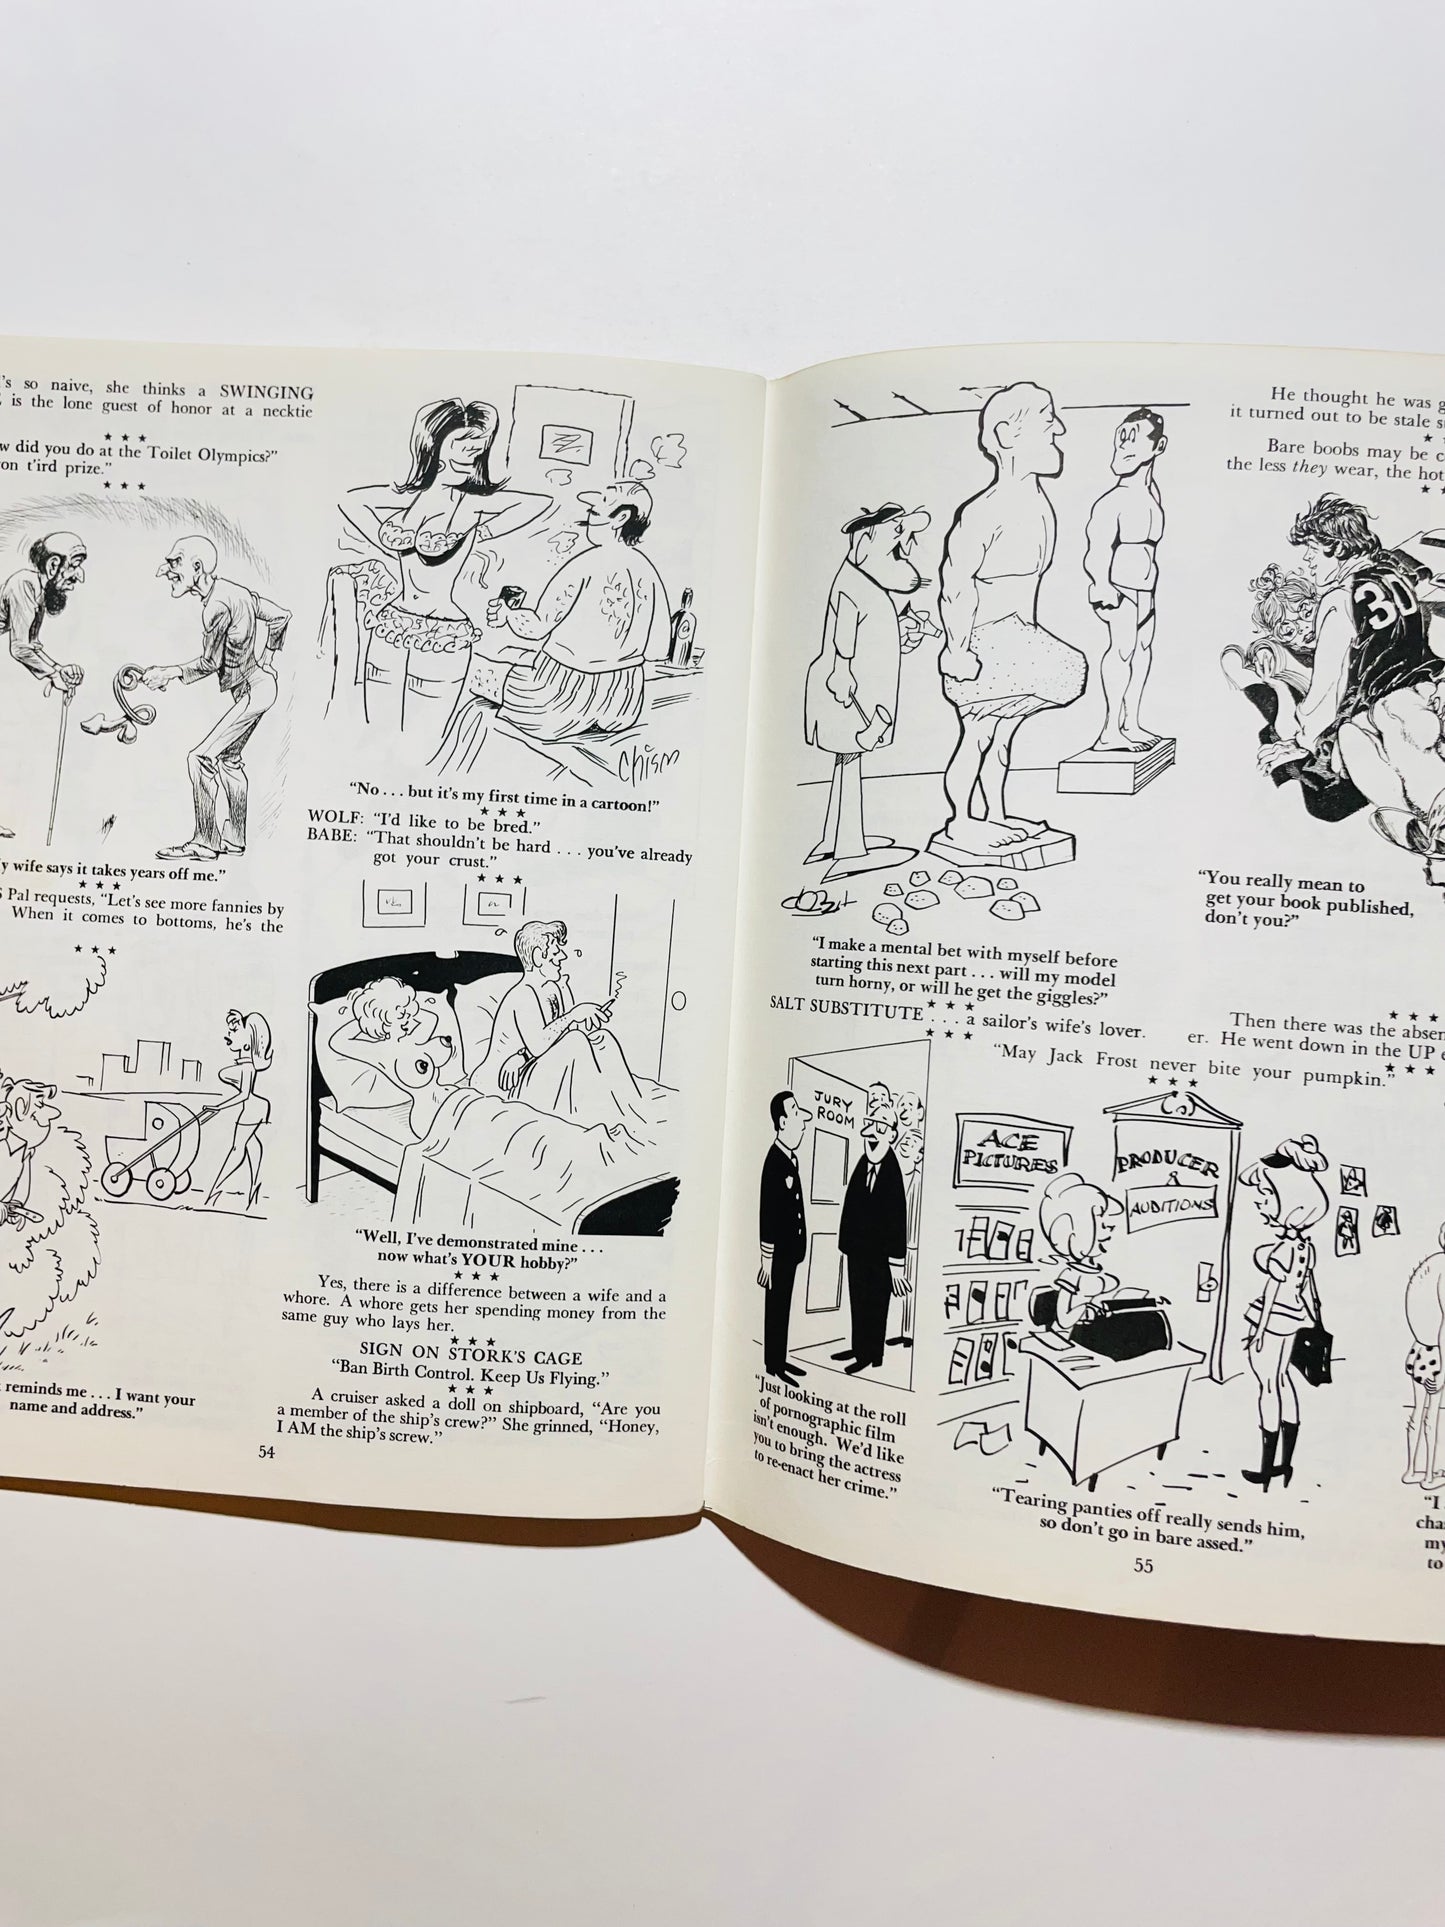 's so naive, she thinks a SWINGING
is the lone guest of honor at a necktie
★ ★ ★
w did you do at the Toilet Olympics?"
on t'ird prize."
★ ★ ★
y wife says it takes years off me."
★ ★ ★
S Pal requests, "Let's see more fannies by
When it comes to bottoms, he's the
★ ★ ★
reminds me . . . I want your
name and address."
Chism
"No . . . but it's my first time in a cartoon!"
★ ★ ★
WOLF: "I'd like to be bred."
BABE: "That shouldn't be hard . . . you've already
got your crust."
★ ★ ★
"Well, I've demonstrated mine . . .
now what's YOUR hobby?"
★ ★ ★
Yes, there is a difference between a wife and a
whore. A whore gets her spending money from the
same guy who lays her.
★ ★ ★
SIGN ON STORK'S CAGE
"Ban Birth Control. Keep Us Flying."
★ ★ ★
A cruiser asked a doll on shipboard, "Are you
a member of the ship's crew?" She grinned, "Honey,
I AM the ship's screw."
54
"I make a mental bet with myself before
starting this next part . . . will my model
turn horny, or will he get the giggles?"
★ ★ ★
SALT SUBSTITUTE . . . a sailor's wife's lover.
★ ★ ★
"May Jack Frost never bite your pumpkin."
★ ★ ★
JURY
ROOM
"Just looking at the roll
of pornographic film
isn't enough. We'd like
you to bring the actress
to re-enact her crime."
ACE
PICTURES
PRODUCER
AUDITIONS
"Tearing panties off really sends him,
so don't go in bare assed."
55
He thought he was g
it turned out to be stale s
★
Bare boobs may be c
the less they wear, the hot
★
30
"You really mean to
get your book published,
don't you?"
★ ★ ★
Then there was the absen
er. He went down in the UP e
★ ★ ★
"I
cha
my
to